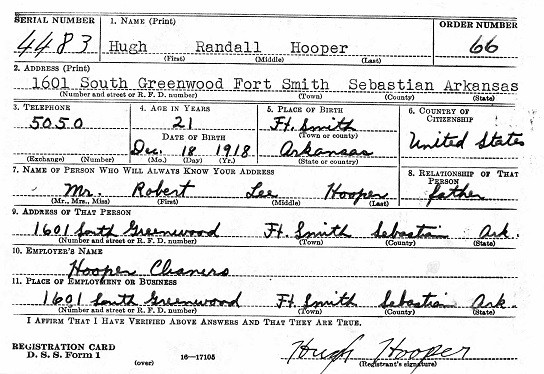 SERIAL NUMBER 1. NAME (Print) ORDER NUMBER
4483 Hugh Randall Hooper 66
(First) (Middle) (Last)
2. ADDRESS (Print)
1601 South Greenwood Fort Smith Sebastian Arkansas
(Number and street or R. F. D. number) (Town) (County) (State)
3. TELEPHONE 4. AGE IN YEARS 5. PLACE OF BIRTH 6. COUNTRY OF CITIZENSHIP
5050 21 Ft. Smith
(Town or county)
DATE OF BIRTH United States
Dec. 18 1918 Arkansas
(Exchange) (Number) (Mo.) (Day) (Yr.) (State or country)
7. NAME OF PERSON WHO WILL ALWAYS KNOW YOUR ADDRESS 8. RELATIONSHIP OF THAT PERSON
Mr. Robert Lee Hooper father
(Mr., Mrs., Miss) (First) (Middle) (Last)
9. ADDRESS OF THAT PERSON
1601 South Greenwood Ft. Smith Sebastian Ark.
(Number and street or R. F. D. number) (Town) (County) (State)
10. EMPLOYER'S NAME
Hooper Cleaners
11. PLACE OF EMPLOYMENT OR BUSINESS
1601 South Greenwood Ft. Smith Sebastian Ark.
(Number and street or R. F. D. number) (Town) (County) (State)
I AFFIRM THAT I HAVE VERIFIED ABOVE ANSWERS AND THAT THEY ARE TRUE.
REGISTRATION CARD
D. S. S. Form 1 (over) 16—17105 Hugh Hooper
(Registrant's signature)